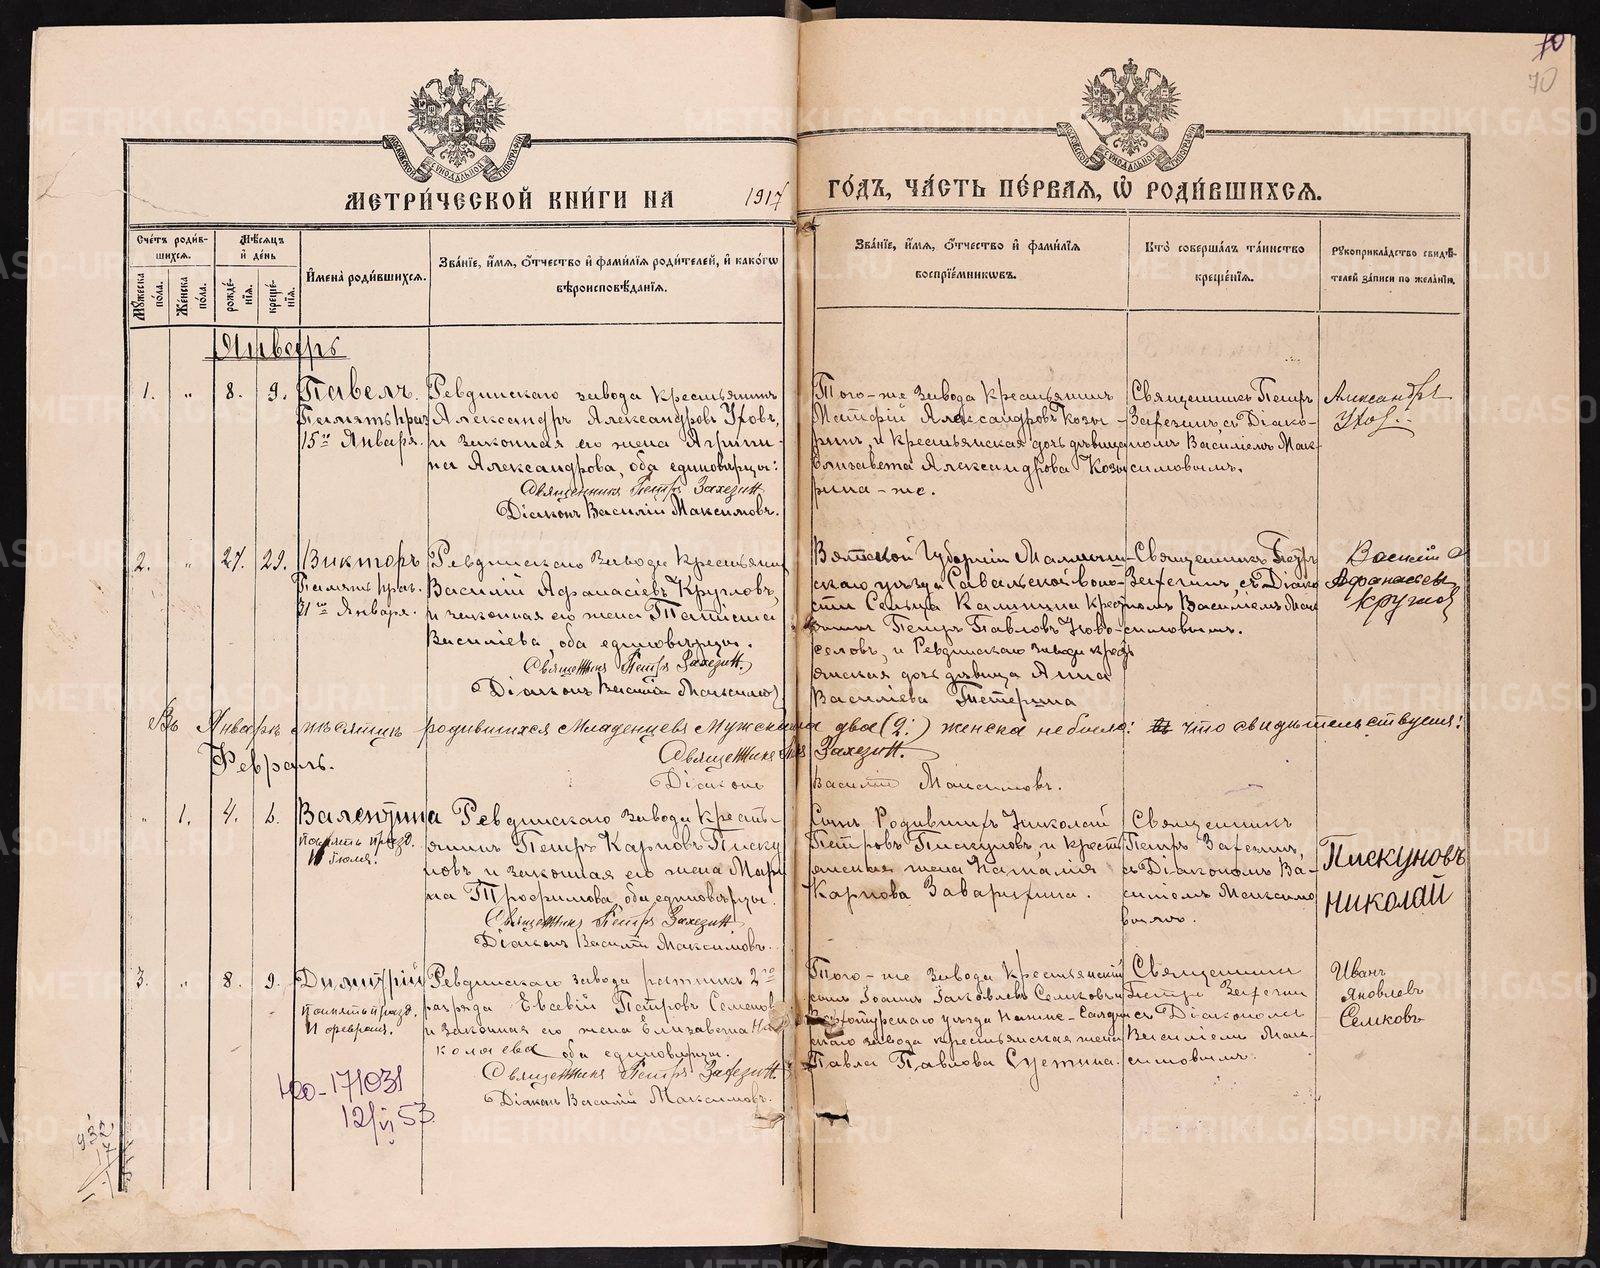 70
70
МОСКОВСКОЙ СѴНОДАЛЬНОЙ ТИПОГРАФІИ
МОСКОВСКОЙ СѴНОДАЛЬНОЙ ТИПОГРАФІИ
МЕТРИ́ЧЕСКОЙ КНИ́ГИ НА 1917 ГО́ДЪ, ЧА́СТЬ ПЕ́РВАЯ, Ѡ҆ РОДИ́ВШИХСЯ.
Сче́тъ роди́в-
шихся.
Мꙋжеска по́ла.
Же́нска по́ла.
Мѣ́сяцъ
и҆ де́нь
рожде́нїя.
креще́нїя.
И҆мена̀ роди́вшихся.
Зва́нїе, и҆́мя, ѻ҆́тчество и҆ фами́лїя роди́телей, и҆ како́гѡ
вѣроисповѣ́данїя.
Зва́нїе, и҆́мя, ѻ҆́тчество и҆ фами́лїя
воспрїе́мникѡвъ.
Кто̀ соверша́лъ та́инство
креще́нїя.
Рꙋкоприкла́дство свидѣ́-
телей за́писи по жела́нїю.
Январь
1. " 8. 9.
Павелъ.
Память праз.
15го Января.
Ревдинскаго завода крестьянинъ
Александръ Александровъ Уховъ,
и законная его жена Агрипи-
на Александрова, оба единовѣрцы:
Священникъ Петръ Захезин.
Діаконъ Василій Максимовъ.
Того-же завода крестьянинъ
Матѳій Александровъ Козы-
ринъ, и крестьянская дочь дѣвица
Елизавета Александрова Козы
рина-же.
Священникъ Петръ
Захезинъ, съ Діако-
номъ Василіемъ Мак-
симовымъ.
Александръ
Ухов.
2. " 27. 29.
Викторъ
Память праз.
31го Января.
Ревдинскаго завода крестьянинъ
Василій Аѳанасіевъ Кругловъ,
и законная его жена Татіана
Василіева, оба единовѣрцы.
Священник Петръ Захезин.
Діаконъ Василій Максимовъ
Вятской Губерніи Малмыж-
скаго уѣзда Савальской воло-
сти Сельца Калинина крест
янинъ Петръ Павловъ Ново-
селовъ, и Ревдинскаго завода крест
янская дочь дѣвица Анна
Василіева Тетерина
Священникъ Петръ
Захезинъ, съ Діако
номъ Василіемъ Мак
симовымъ.
Василій
Афонасьев
Круглов
Въ Январѣ мѣсяцѣ родившихся младенцевъ мужеска пола два (2.) женска небыло: что свидѣтельствуемъ:
Священникъ Петръ Захезин.
Діаконъ Василій Максимовъ.
Февраль.
" 1. 4. 6.
Валентина
память празд.
Іюля.
Ревдинскаго завода кресть-
янинъ Петръ Карповъ Писку
новъ и законная его жена Мари
на Трофимова, оба единовѣрцы.
Священник Петръ Захезин
Діаконъ Василій Максимовъ.
Сынъ Родившихъ Николай
Петровъ Пискуновъ, и крест
янская жена Наталія
Карпова Заварзина.
Священникъ
Петръ Захезинъ,
съ Діакономъ Ва-
силіемъ Максимо
вымъ.
Пискуновъ
Николай
3. " 8. 9.
Димитрій
память празд.
11 февраля.
Ревдинскаго завода ратникъ 2го
разряда Евсевій Петровъ Семенов
и законная его жена Елизавета Ни
колаева оба единовѣрцы.
Священник Петръ Захезин.
Діаконъ Василій Максимовъ.
Того-же завода крестьянскій
сынъ Іоаннъ Іаковлевъ Семковъ
Верхотурскаго уѣзда Нижне-Салдин
скаго завода крестьянская жена
Павла Павлова Суетина.
Священникъ
Петръ Захезин
съ Діакономъ
Василіемъ Мак-
симовымъ.
Иванъ
Яковлевъ
Семковъ
ню-171031
12/VI 53
932
17